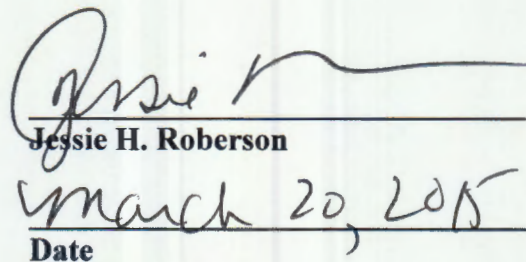 Jessie
Jessie H. Roberson
March 20, 2015
Date